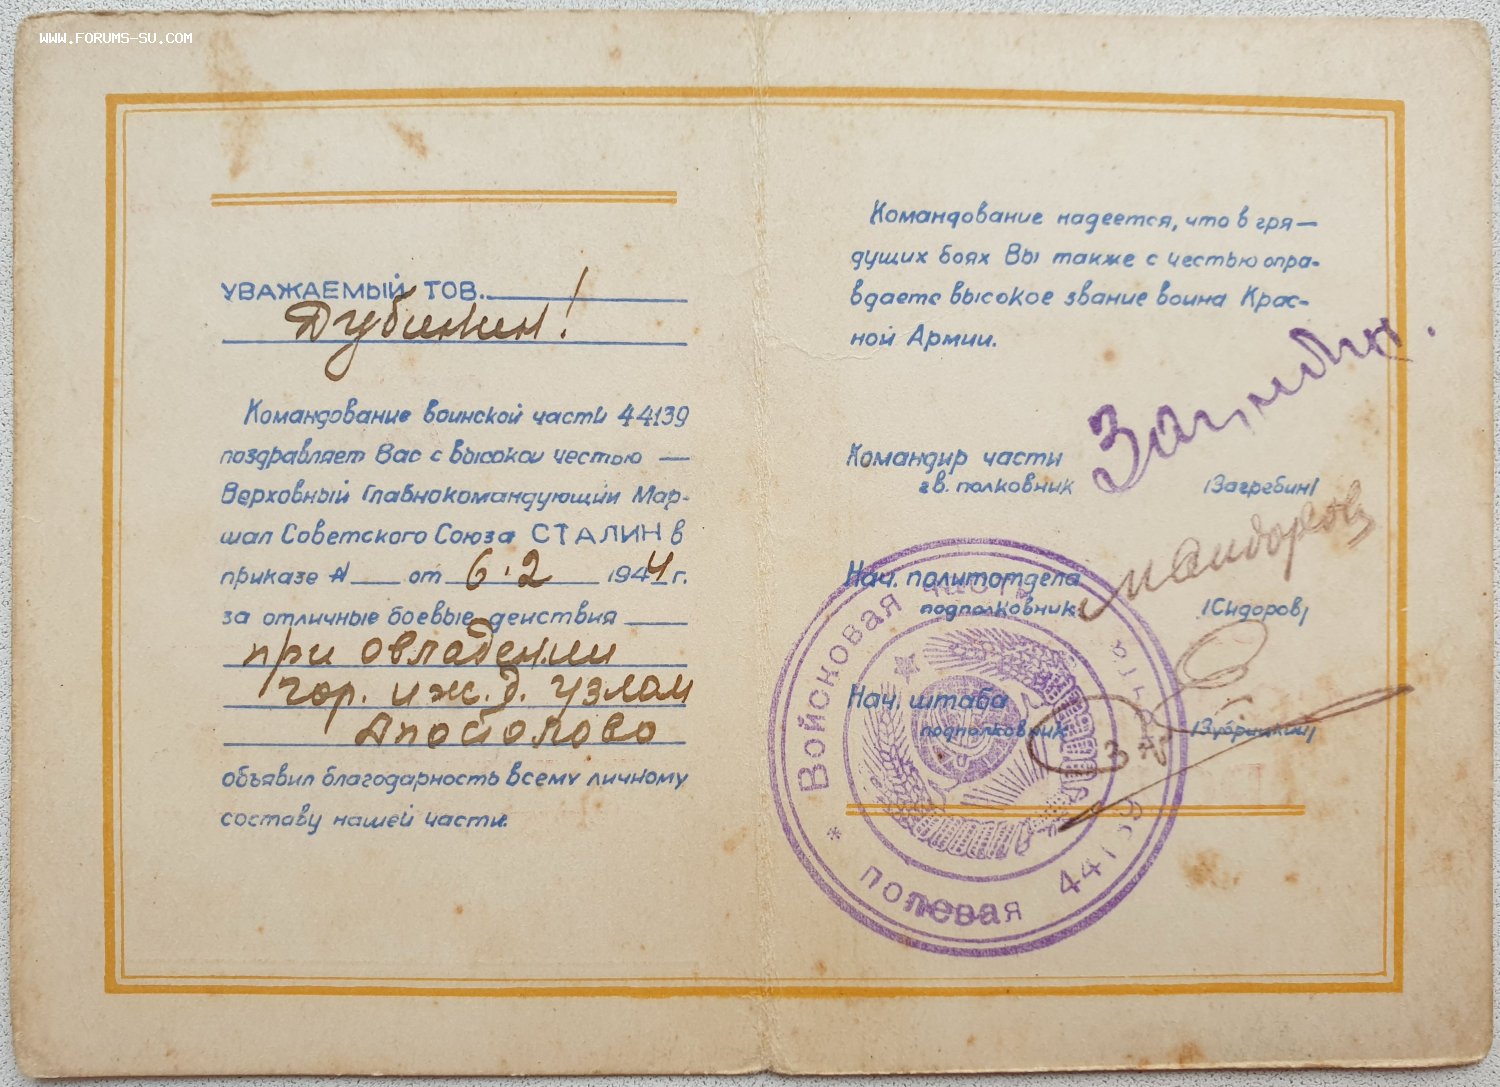 WWW.FORUMS-SU.COM
УВАЖАЕМЫЙ ТОВ.
Дубинин!
Командование воинской части 44139
поздравляет Вас с высокой честью —
Верховный Главнокомандующий Мар-
шал Советского Союза СТАЛИН в
приказе № от 6.2 1944 г.
за отличные боевые действия
при овладении
гор. и ж.д. узлом
Апостолово
объявил благодарность всему личному
составу нашей части.
Командование надеется, что в гря—
дущих боях Вы также с честью опра-
вдаете высокое звание воина Крас-
ной Армии.
Командир части
гв. полковник /Загребин/
Нач. политотдела
подполковник /Сидоров/
Нач. штаба
подполковник
* Войсковая часть
полевая